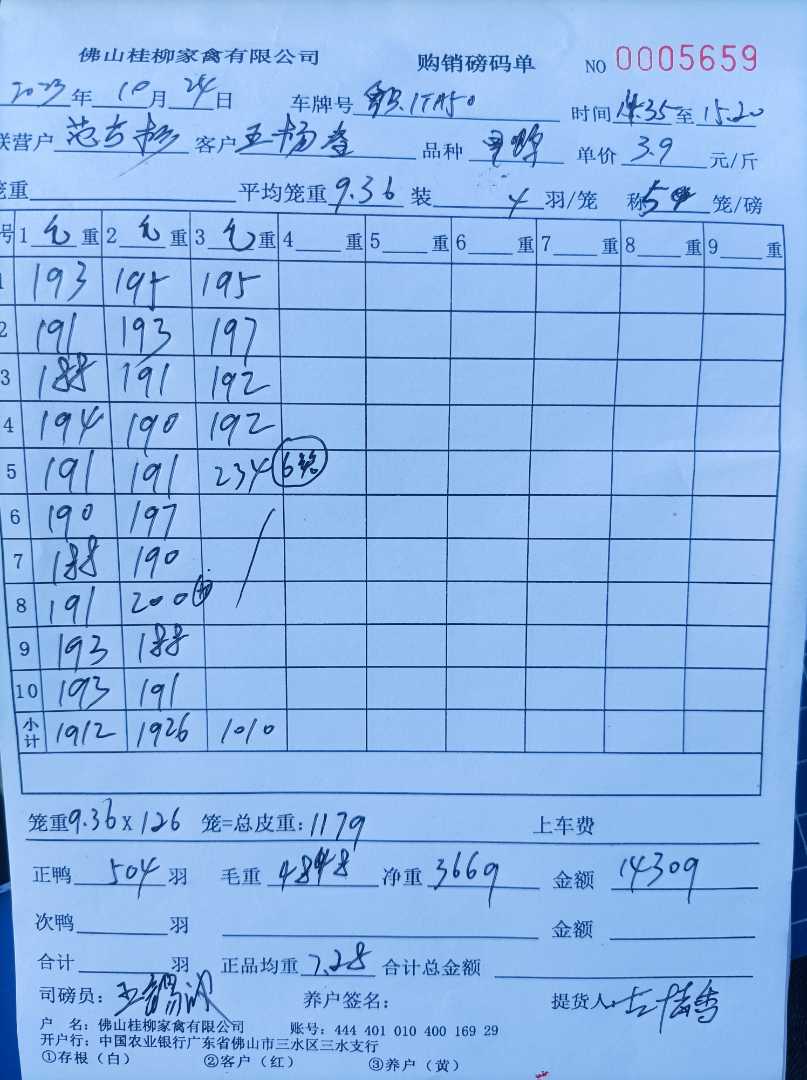 佛山桂柳家禽有限公司 购销磅码单 NO 0005659
2023年10月24日 车牌号 时间14:35至15.20
联营户 客户 品种 单价3.9元/斤
笼重 平均笼重9.36装4羽/笼 称5笼/磅
号 1毛重 2毛重 3毛重 4重 5重 6重 7重 8重 9重
1 193 195 195
2 191 193 197
3 188 191 192
4 194 190 192
5 191 191 234 6笼
6 190 197
7 188 190
8 191 200
9 193 188
10 193 191
小计 1912 1926 1010
笼重9.36x126笼=总皮重:1179 上车费
正鸭504羽 毛重4848净重3669 金额14309
次鸭羽 金额
合计羽 正品均重7.28合计总金额
司磅员: 养户签名: 提货人:
户 名:佛山桂柳家禽有限公司 账号:444 401 010 400 169 29
开户行:中国农业银行广东省佛山市三水区三水支行
①存根(白) ②客户(红) ③养户(黄)